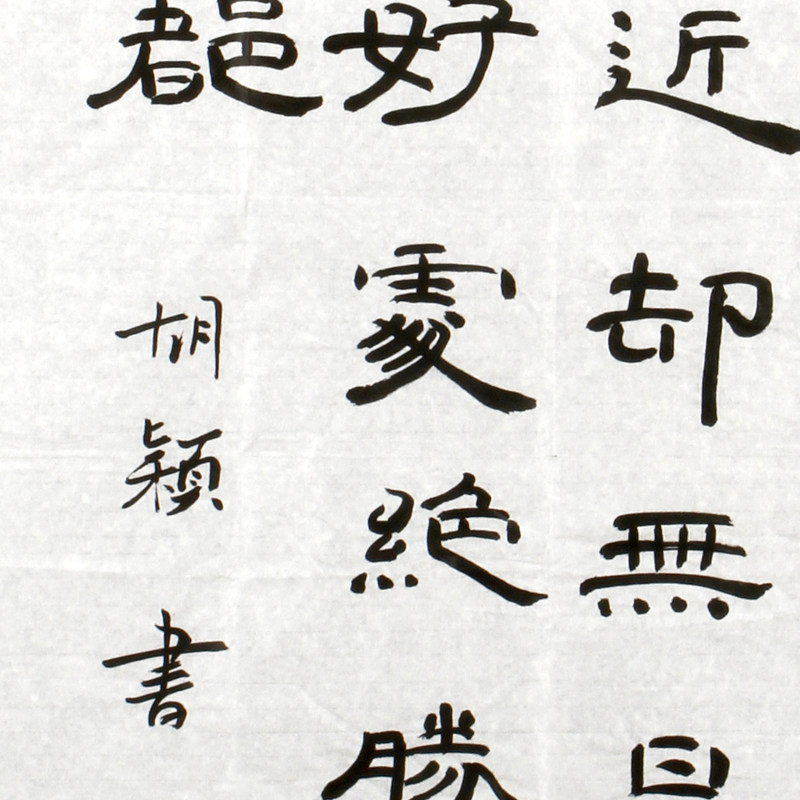 近却無
好處絶勝
都
胡穎書